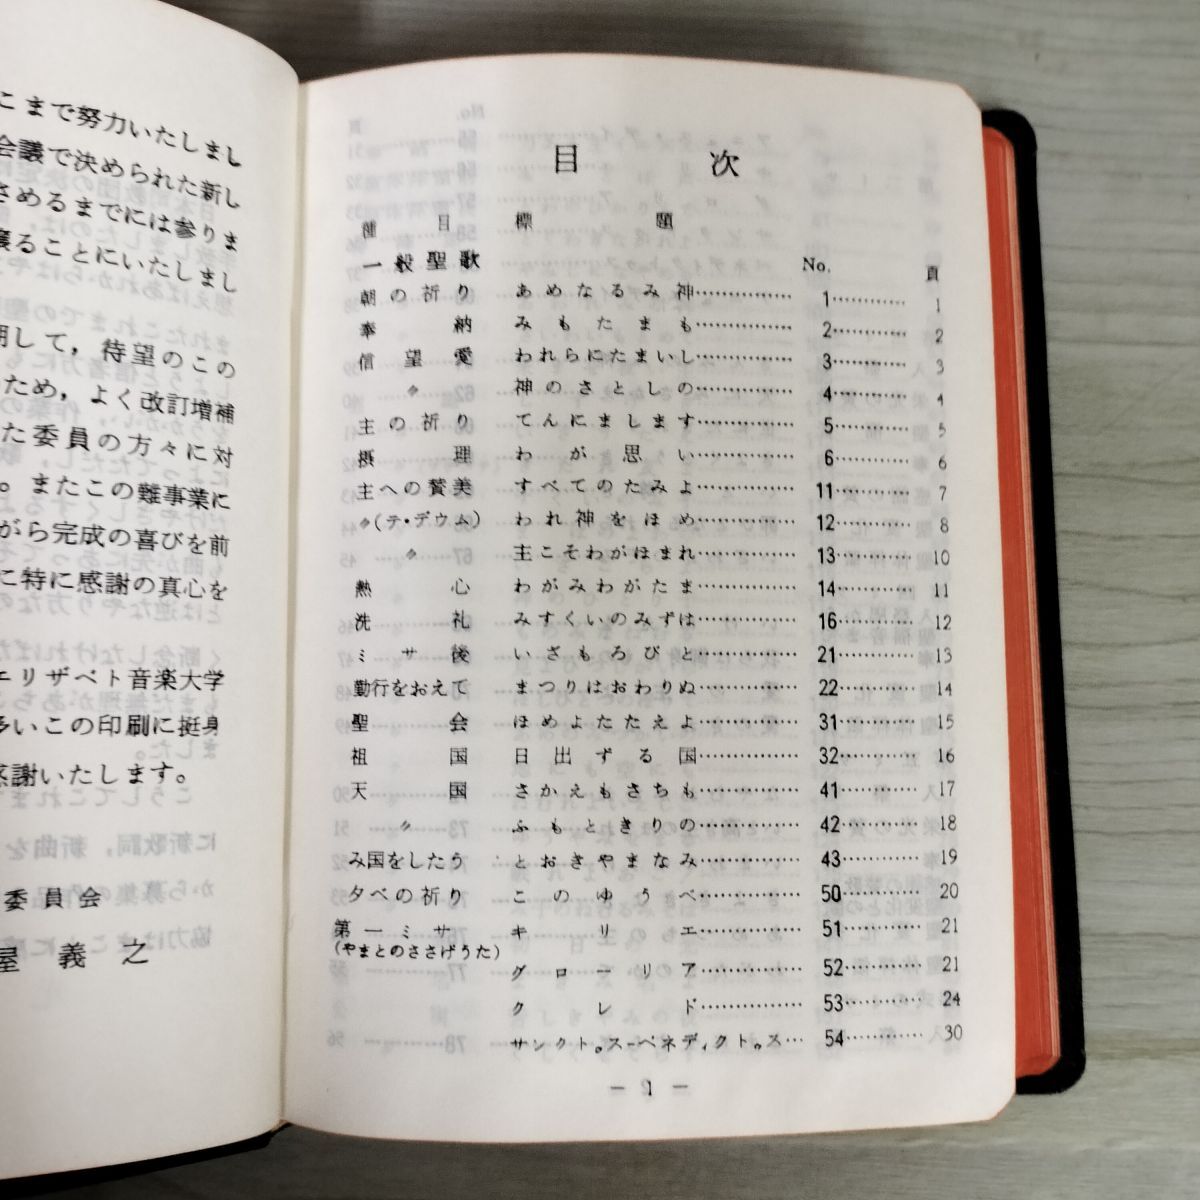 こまで努力いたしまし
会議で決められた新し
さめるまでには参りま
譲ることにいたしまし
期して，待望のこの
ため，よく改訂増補
た委員の方々に対
。またこの難事業に
がら完成の喜びを前
に特に感謝の真心を
エリザベト音楽大学
多いこの印刷に挺身
感謝いたします。
委員会
屋 義 之
目 次
種 目 標 題
一般聖歌 No. 頁
朝の祈り あめなるみ神…………… 1………… 1
奉 納 みもたまも…………… 2………… 2
信望愛 われらにたまいし…………… 3………… 3
〃 神のさとしの…………… 4………… 4
主の祈り てんにまします…………… 5………… 5
摂 理 わが思い…………… 6………… 6
主への賛美 すべてのたみよ…………… 11………… 7
〃(テ・デウム) われ神をほめ…………… 12………… 8
〃 主こそわがほまれ…………… 13………… 10
熱 心 わがみわがたま…………… 14………… 11
洗 礼 みすくいのみずは…………… 16………… 12
ミサ後 いざもろびと…………… 21………… 13
勤行をおえて まつりはおわりぬ…………… 22………… 14
聖 会 ほめよたたえよ…………… 31………… 15
祖 国 日出ずる国…………… 32………… 16
天 国 さかえもさちも…………… 41………… 17
〃 ふもときりの…………… 42………… 18
み国をしたう とおきやまなみ…………… 43………… 19
夕べの祈り このゆうべ…………… 50………… 20
第一ミサ キリエ…………… 51………… 21
(やまとのささげうた)
グローリア…………… 52………… 21
クレド…………… 53………… 24
サンクトゥス-ベネディクトゥス… 54………… 30
— 1 —